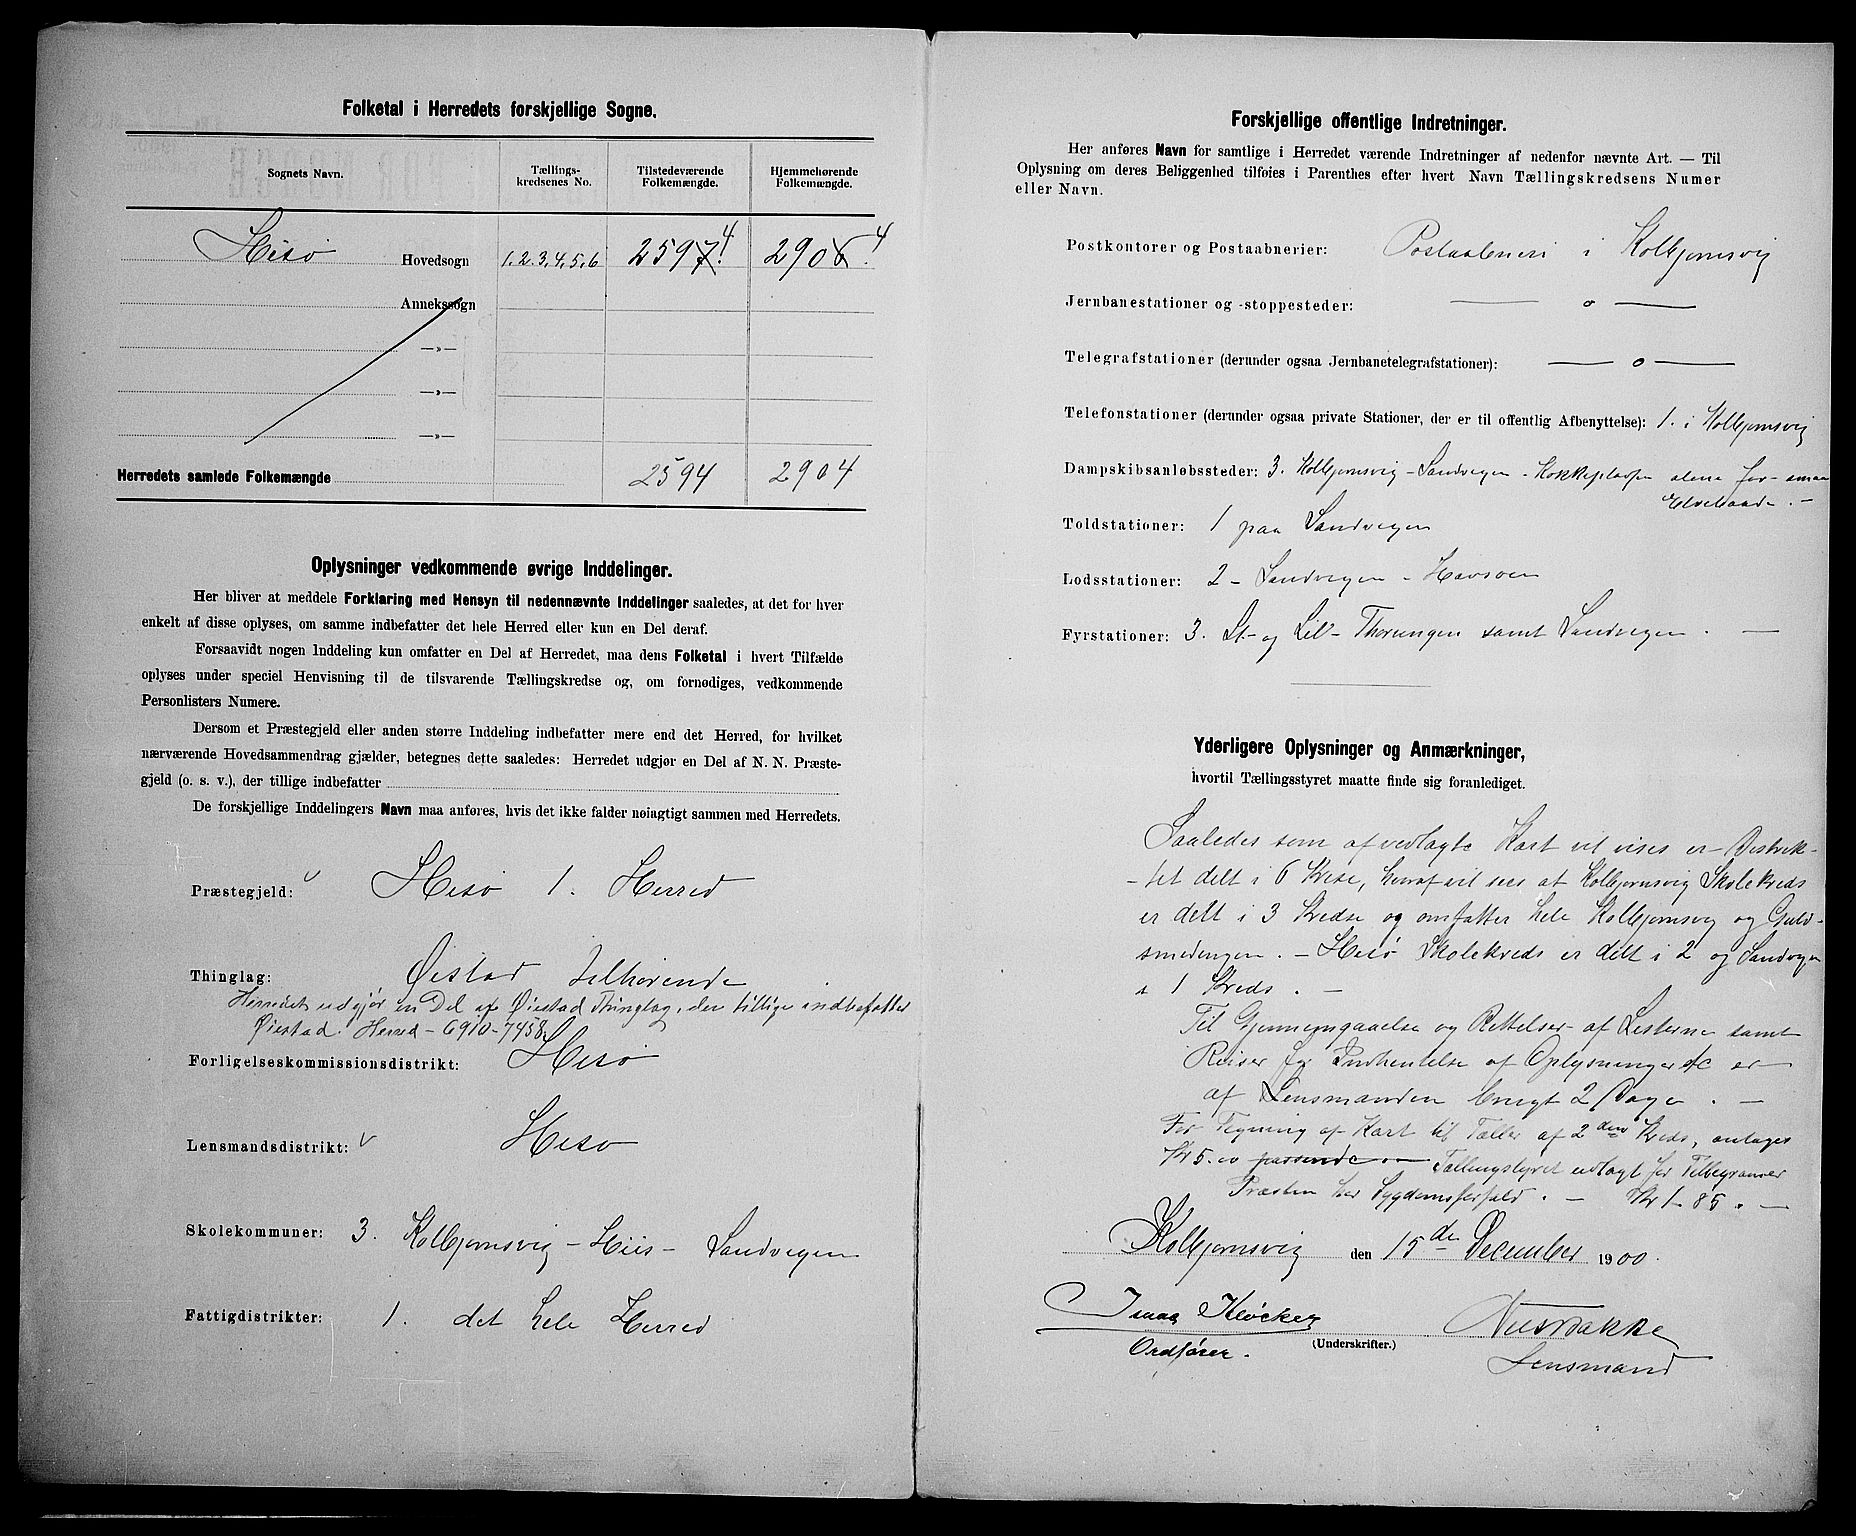 Folketal i Herredets forskjellige Sogne.
Sognets Navn.
Tællings-
kredsenes No.
Tilstedeværende
Folkemængde.
Hjemmehørende
Folkemængde.
Hisø Hovedsogn 1,2,3,4,5,6 2597 4 2906 4
Annekssogn
—»—
—»—
—»—
Herredets samlede Folkemængde 2594 2904
Oplysninger vedkommende øvrige Inddelinger.
Her bliver at meddele Forklaring med Hensyn til nedennævnte Inddelinger saaledes, at det for hver
enkelt af disse oplyses, om samme indbefatter det hele Herred eller kun en Del deraf.
Forsaavidt nogen Inddeling kun omfatter en Del af Herredet, maa dens Folketal i hvert Tilfælde
oplyses under speciel Henvisning til de tilsvarende Tællingskredse og, om fornødiges, vedkommende
Personlisters Numere.
Dersom et Præstegjeld eller anden større Inddeling indbefatter mere end det Herred, for hvilket
nærværende Hovedsammendrag gjælder, betegnes dette saaledes: Herredet udgjør en Del af N. N. Præste-
gjeld (o. s. v.), der tillige indbefatter
De forskjellige Inddelingers Navn maa anføres, hvis det ikke falder nøiagtigt sammen med Herredets.
Præstegjeld: Hisø 1. Herred
Thinglag: Øistad tilhørende
Herredet udgjør en Del af Øiestad Thinglag, der tillige indbefatter
Øiestad Herred - 6910-7458
Forligelseskommissionsdistrikt: Hisø
Lensmandsdistrikt: Hisø
Skolekommuner: 3. Kolbjørnsvig - Hiis - Sandvigen
Fattigdistrikter: 1. det hele Herred
Forskjellige offentlige Indretninger.
Her anføres Navn for samtlige i Herredet værende Indretninger af nedenfor nævnte Art. — Til
Oplysning om deres Beliggenhed tilføies i Parenthes efter hvert Navn Tællingskredsens Numer
eller Navn.
Postkontorer og Postaabnerier: Postaabneri i Kolbjørnsvig
Jernbanestationer og -stoppesteder: — o —
Telegrafstationer (derunder ogsaa Jernbanetelegrafstationer): — o —
Telefonstationer (derunder ogsaa private Stationer, der er til offentlig Afbenyttelse): 1. i Kolbjørnsvig
Dampskibsanløbssteder: 3. Kolbjørnsvig - Sandvigen - Kokkeplassen alene for smaa
Elvebaade. -
Toldstationer: 1 paa Sandvigen
Lodsstationer: 2 - Sandvigen - Havsøen
Fyrstationer: 3. St- og Lil- Thorungen samt Sandvigen. —
Yderligere Oplysninger og Anmærkninger,
hvortil Tællingsstyret maatte finde sig foranlediget.
Saaledes som af vedlagte Kart vil vises er Distrik-
-tet delt i 6 Krese, hvoraf vil sees at Kolbjørnsvig Skolekreds
er delt i 3 Kredse og omfatter hele Kolbjørnsvig og Guld-
smedengen. - Hisø Skolekreds er delt i 2 og Sandvigen
i 1 Kreds. -
Til Gjennemgaaelse og Rettelser af Listerne samt
Reiser for Indhentelse af Oplysninger &c er
af Lensmanden brugt 2 Dage. —
For Tegning af Kart til Tæller af 2den Kreds, antages
Kr 5. passende Tællingstyret udlagt for Telegrammer
Præsten har Sygdomsforfald. - Kr 1-85. —
Kolbjørnsvig den 15de December 1900.
Isaac Kløcker
Ordfører.
(Underskrifter.)
Lensmand